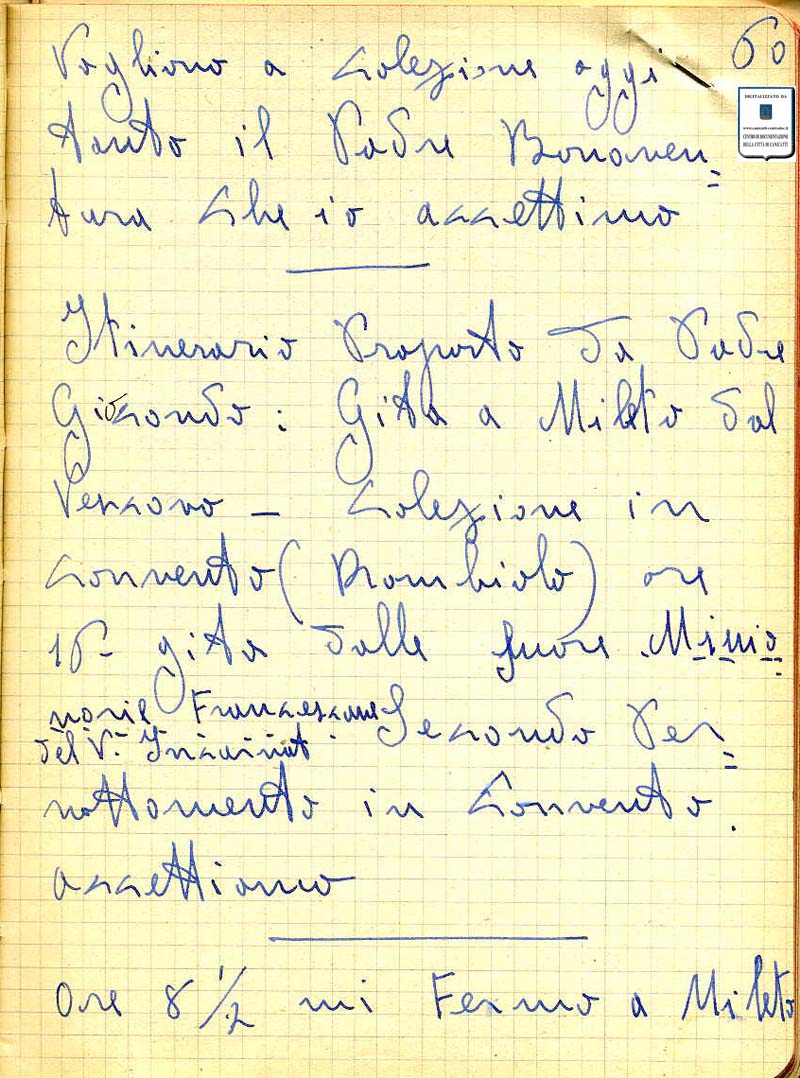 60
DIGITALIZZATO DA
www.canicatti-centrodoc.it
CENTRO DI DOCUMENTAZIONE
DELLA CITTÀ DI CANICATTÌ
Vogliono a colezione oggi
tanto il Padre Bonaven=
tura che io accettimo
Itinerario Proposto da Padre
Giocondo: Gita a Mileto dal
Vescovo – colezione in
convento (Rombiolo) ore
16 – gita dalle suore Missio
narie Francescane
del V. Incarnat.
Secondo Per=
nottamento in Convento.
accettiamo
Ore 8 1/2 mi Fermo a Mileto